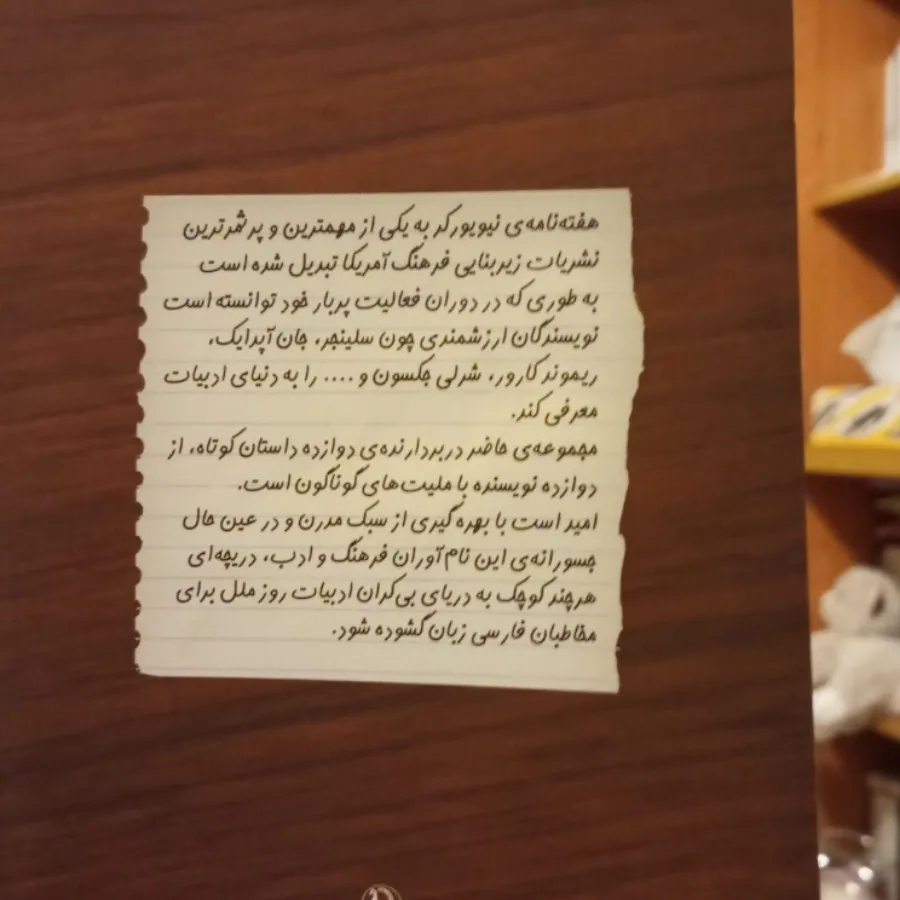 هفته‌نامه‌ی نیویورکر به یکی از مهمترین و پر ثمرترین
نشریات زیربنایی فرهنگ آمریکا تبدیل شده است
به طوری که در دوران فعالیت پربار خود توانسته است
نویسندگان ارزشمندی چون سلینجر، جان آپدایک،
ریموند کارور، شرلی جکسون و .... را به دنیای ادبیات
معرفی کند.
مجموعه‌ی حاضر دربردارنده‌ی دوازده داستان کوتاه، از
دوازده نویسنده با ملیت‌های گوناگون است.
امید است با بهره گیری از سبک مدرن و در عین حال
جسورانه‌ی این نام‌آوران فرهنگ و ادب، دریچه‌ای
هرچند کوچک به دریای بی‌کران ادبیات روز ملل برای
مخاطبان فارسی زبان گشوده شود.